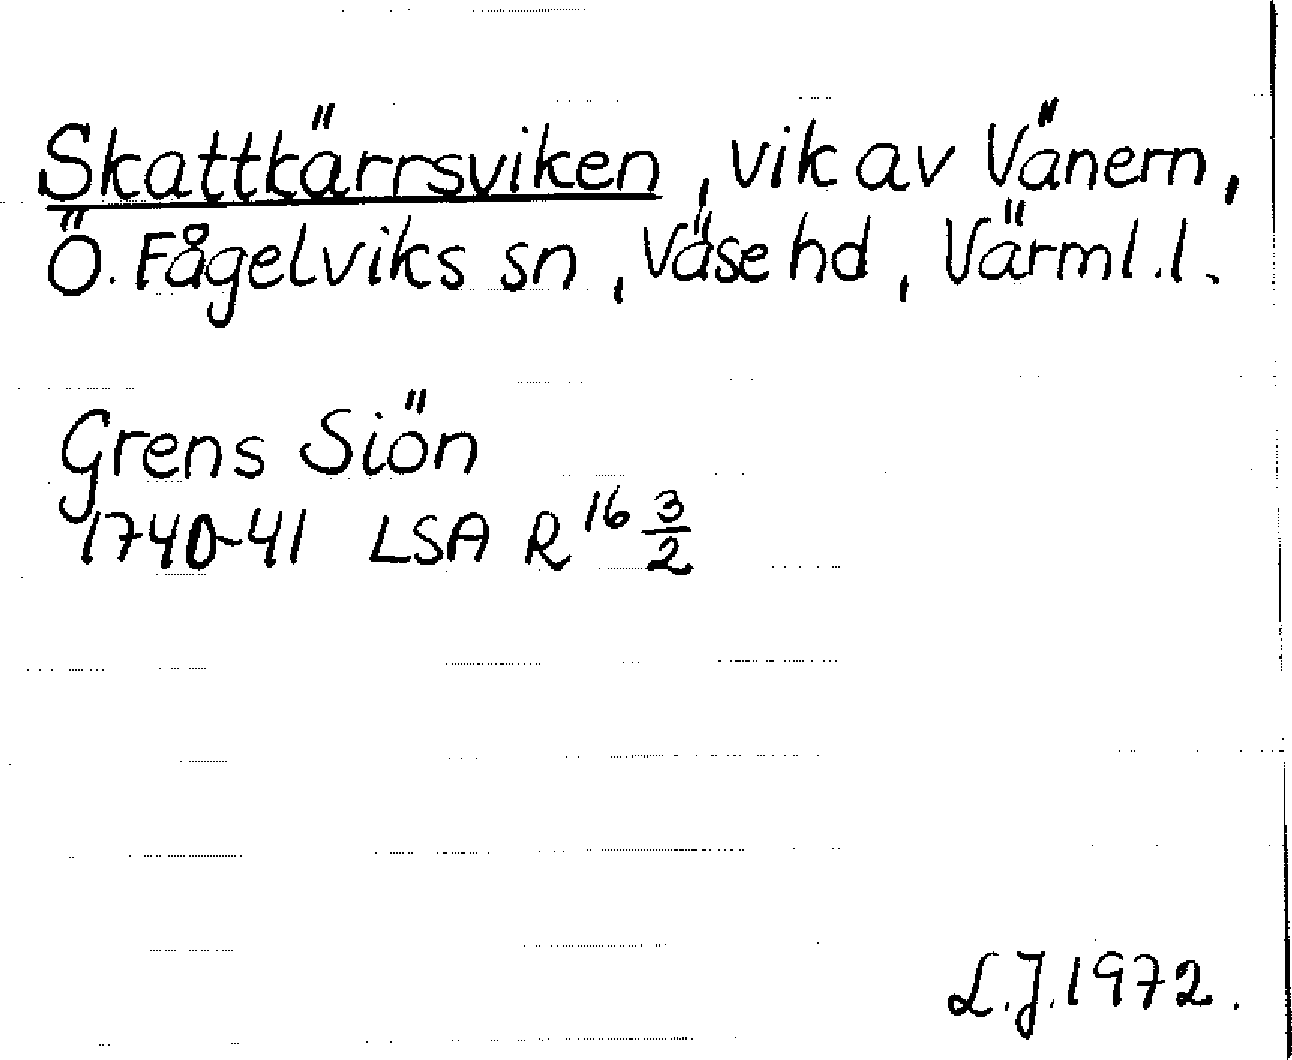 Skattkärrsviken, vik av Vänern,
Ö. Fågelviks sn, Väse hd, Värml. l.
Grens Siön
1740-41 LSA R 16 3/2
L.J. 1972.